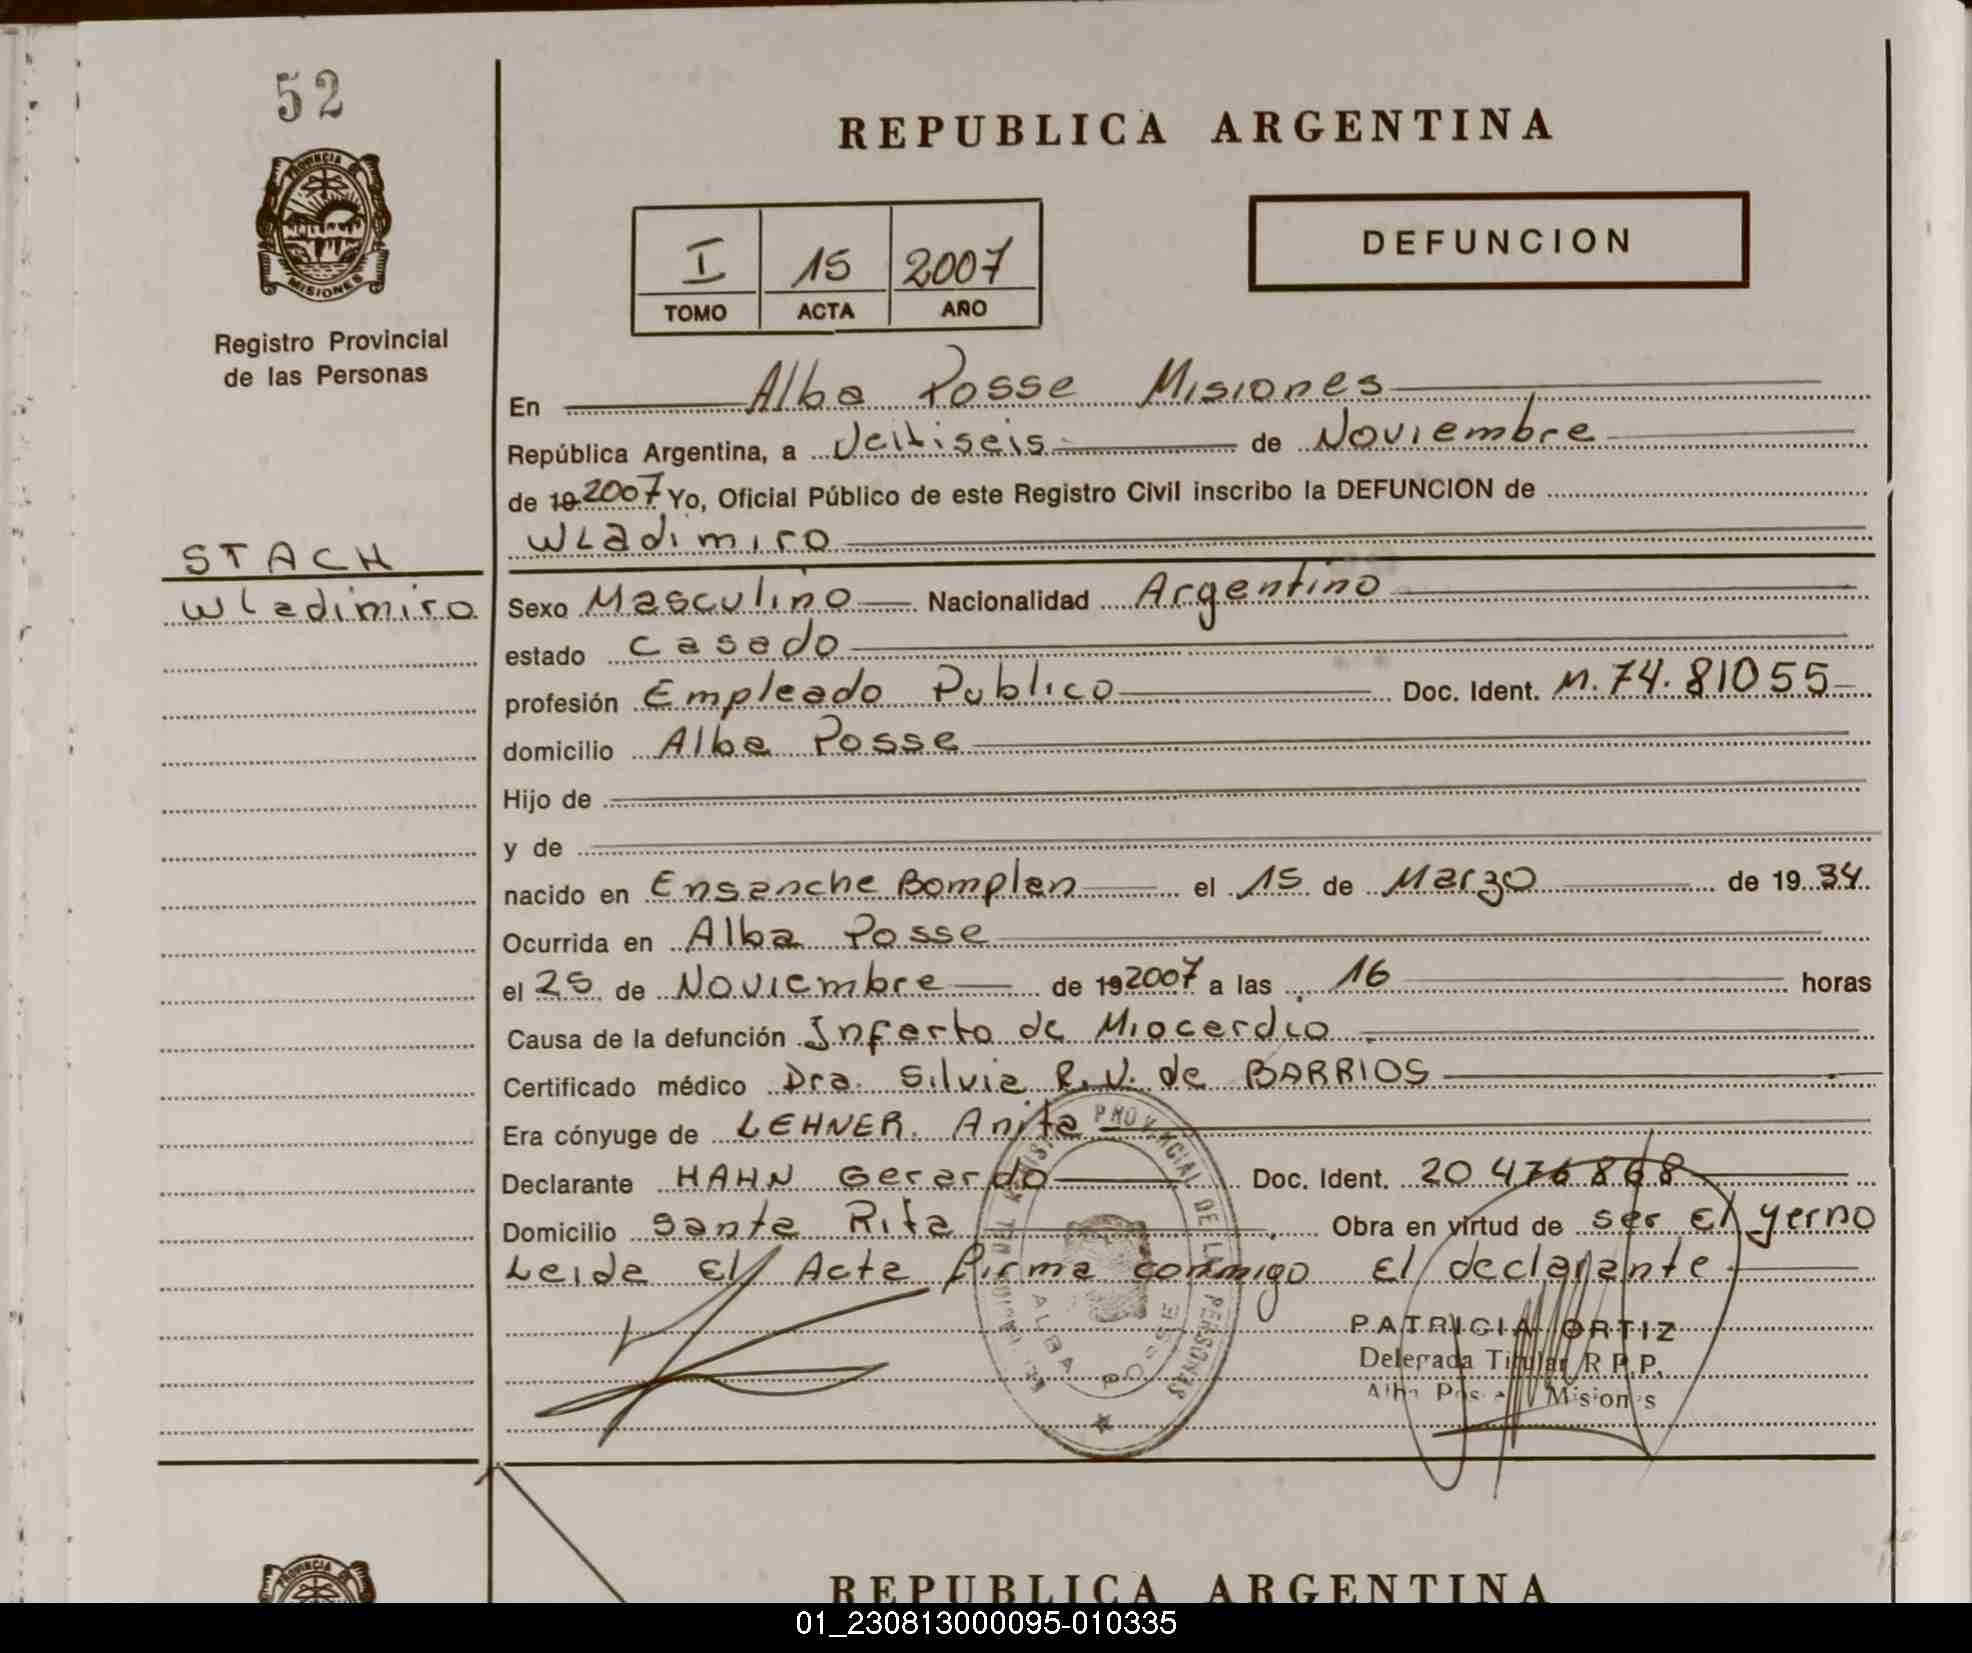 52
PROVINCIA DE
MISIONES
Registro Provincial
de las Personas
REPUBLICA ARGENTINA
I 15 2007
TOMO ACTA AÑO
DEFUNCION
En Alba Posse Misiones
República Argentina, a Veitiseis de Noviembre
de 19 2007 Yo, Oficial Público de este Registro Civil inscribo la DEFUNCION de
Wladimiro
STACH
Wladimiro
Sexo Masculino Nacionalidad Argentino
estado casado
profesión Empleado Publico Doc. Ident. M. 74.81055
domicilio Alba Posse
Hijo de
y de
nacido en Ensanche Bomplan el 15 de Marzo de 19 34
Ocurrida en Alba Posse
el 25 de Noviembre de 19 2007 a las 16 horas
Causa de la defunción Inferto de Miocerdio
Certificado médico Dra. Silvia R. V. de BARRIOS
Era cónyuge de LEHNER. Anita
Declarante HAHN Gerardo Doc. Ident. 20 476868
Domicilio Santa Rita Obra en virtud de ser El yerno
Leida El Acta firma conmigo El declarante
PROVINCIAL DE LAS PERSONAS
ALBA POSSE
PATRICIA ORTIZ
Delegada Titular R.P.P.
Alba Posse Misiones
PROVINCIA
REPUBLICA ARGENTINA
01_230813000095-010335